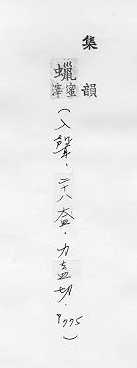 集韻
蠟
蜜滓
(入聲．二十八盍．力盍切．P775)